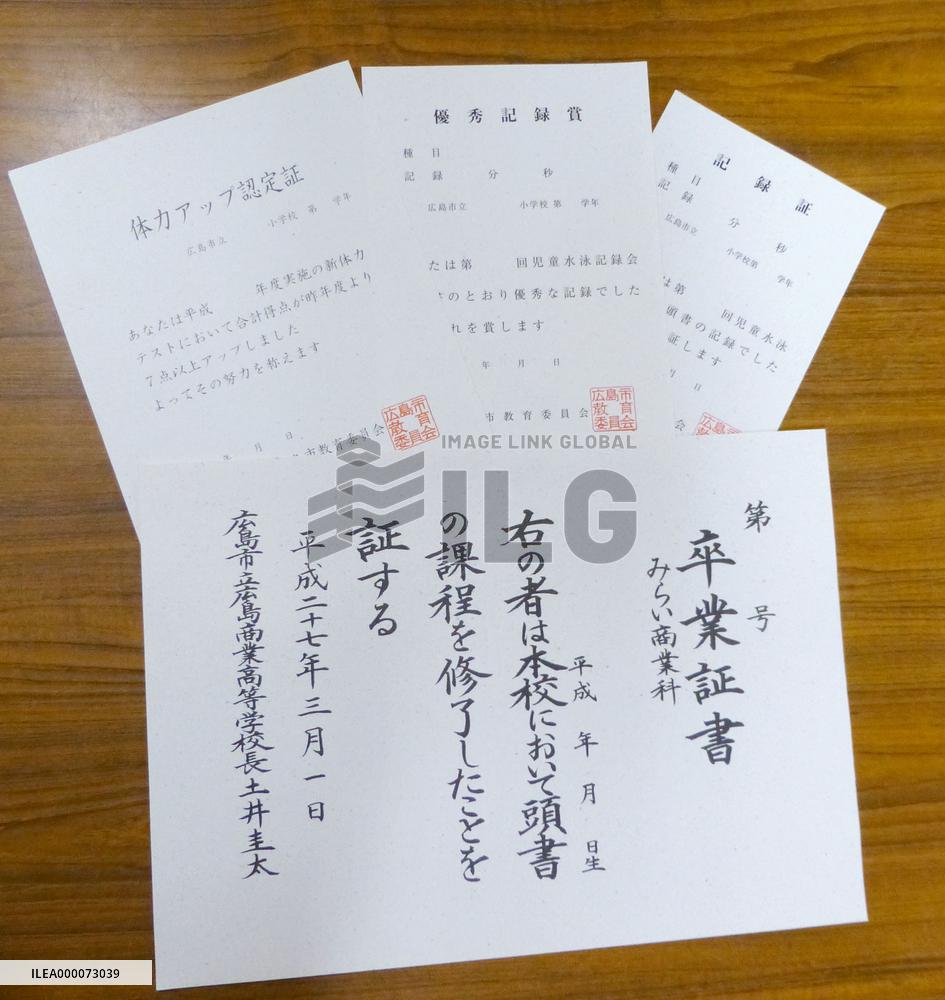 体力アップ認定証
広島市立 小学校 第 学年
あなたは平成 年度実施の新体力
テストにおいて合計得点が昨年度より
7点以上アップしました
よってその努力を称えます
年 月 日
市教育委員会
広島市
教育
委員会
優秀記録賞
種目
記録 分 秒
広島市立 小学校 第 学年
たは第 回児童水泳記録会
のとおり優秀な記録でした
れを賞します
年 月 日
市教育委員会
広島市
教育
委員会
記録証
種目
記録 分 秒
広島市立 小学校第 学年
は第 回児童水泳
頭書の記録でした
証します
月 日
会
広島市
IMAGE LINK GLOBAL
ILG
第 号
卒業証書
みらい商業科
平成 年 月 日生
右の者は本校において頭書
の課程を修了したことを
証する
平成二十七年三月一日
広島市立広島商業高等学校長土井圭太
ILEA000073039